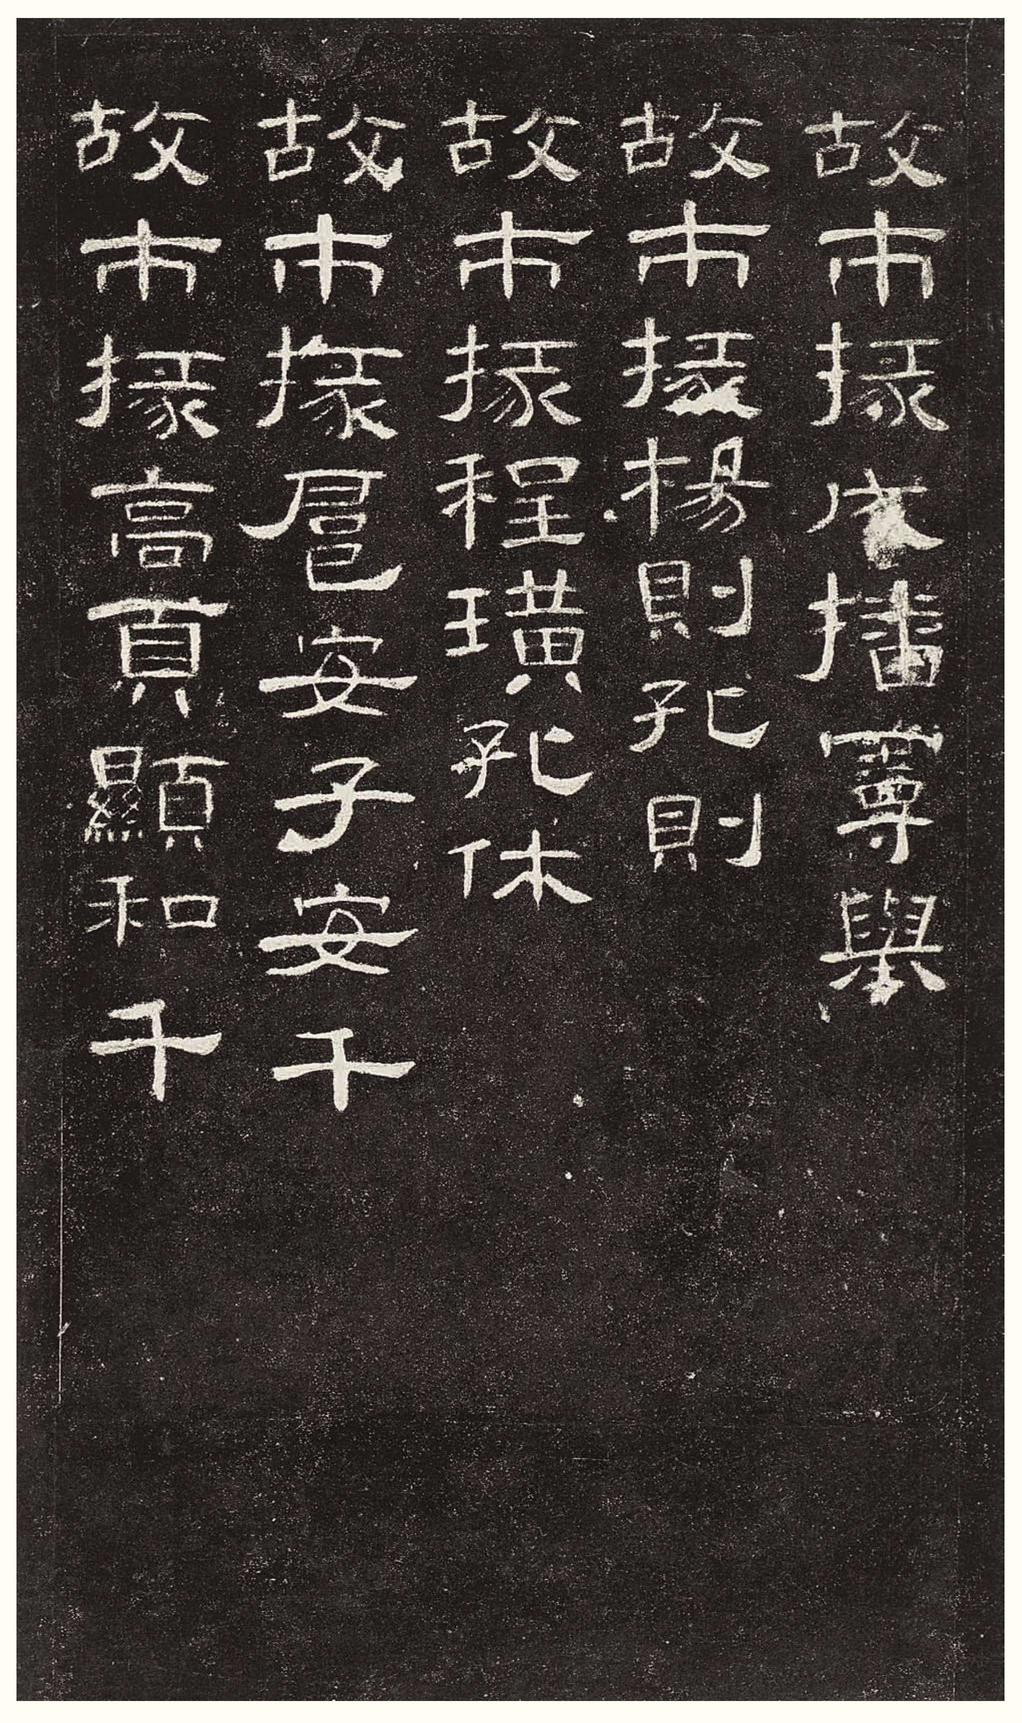 故市掾成播曼舉
故市掾楊則孔則
故市掾程璜孔休
故市掾扈安子安千
故市掾高頁顯和千